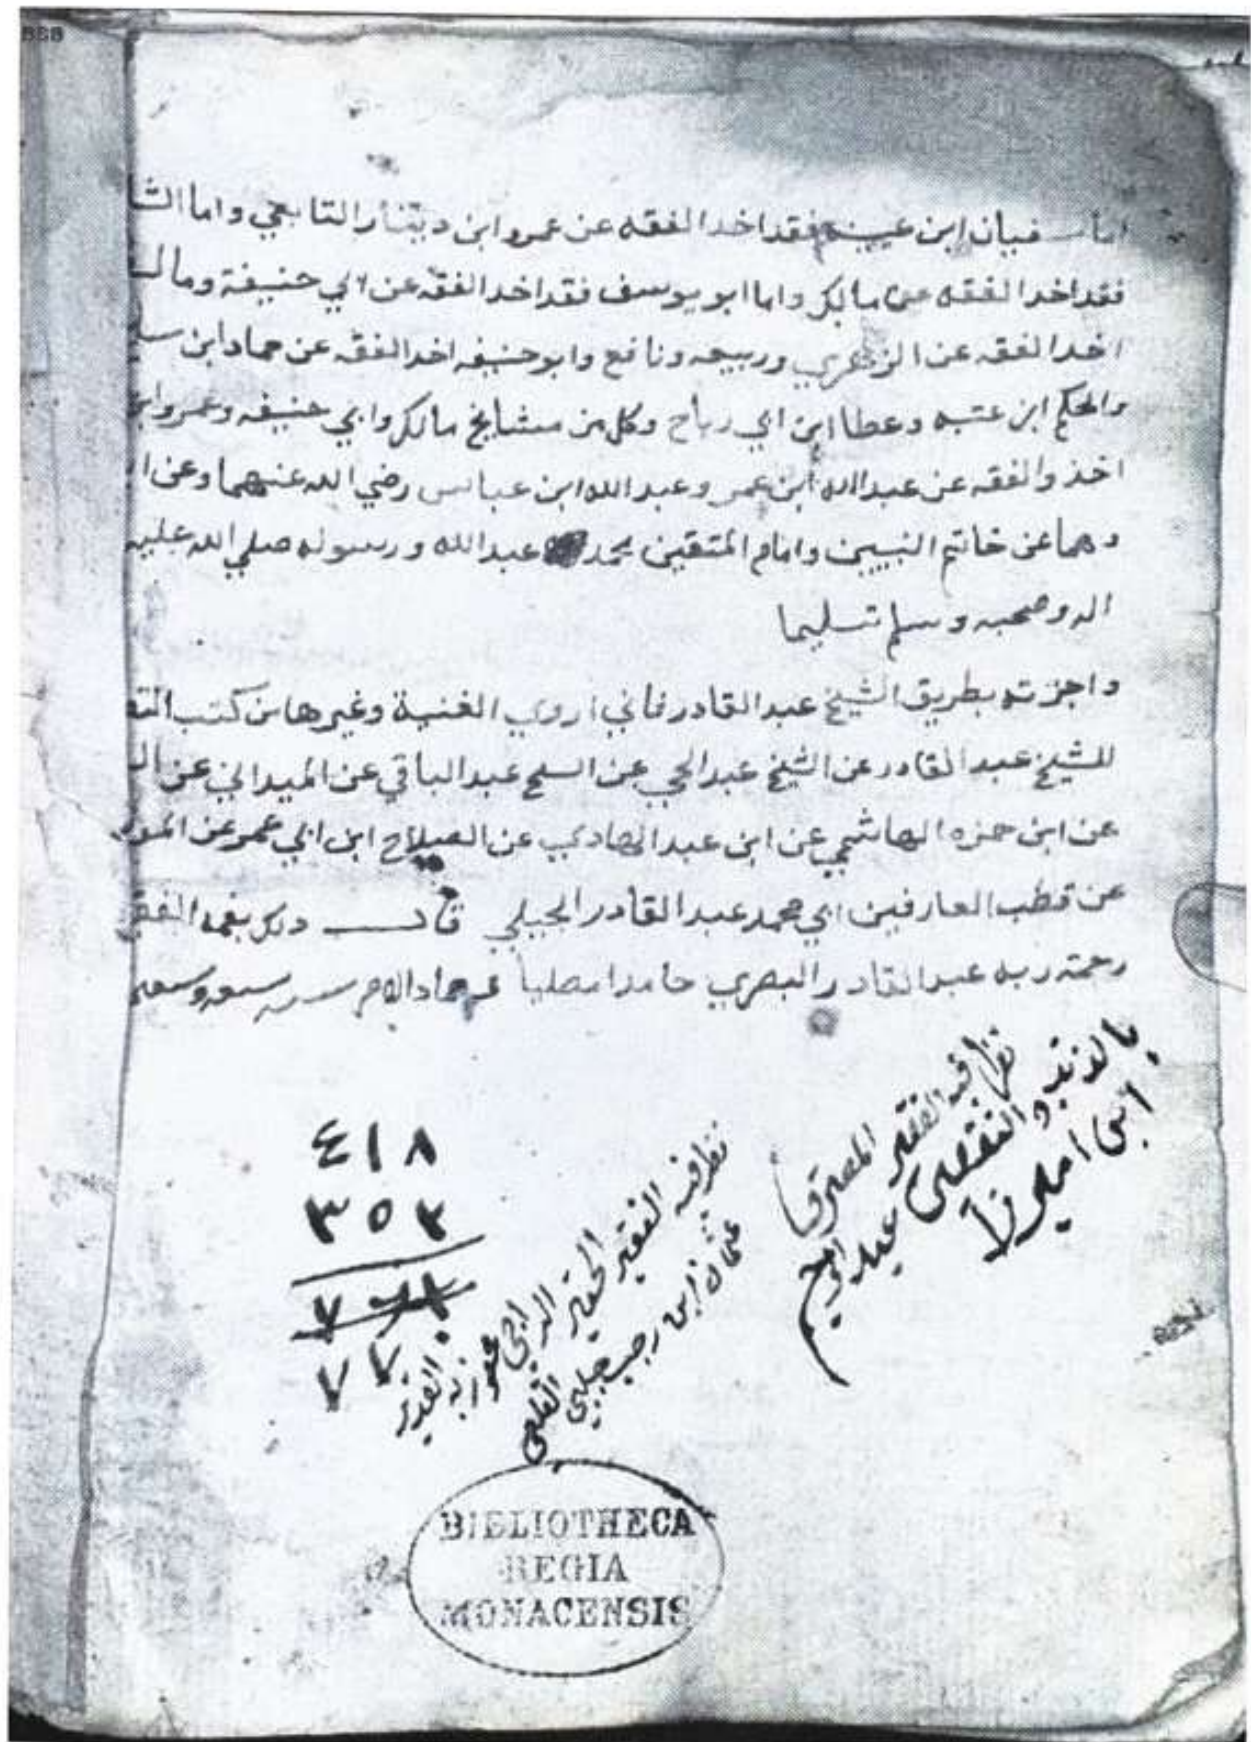 اما سفيان ابن عيينه فقد اخد الفقه عن عمرو ابن دينار التابعي واما الشا
فقد اخد الفقه عن مالك واما ابو يوسف فقد اخد الفقه عن ابي حنيفة ومالك
اخد الفقه عن الزهري وربيعه ونافع وابو حنيفه اخد الفقه عن حماد ابن سلي
والحكم ابن عتبه وعطا ابن ابي رباح وكل من مشايخ مالك وابي حنيفه وعمرو ابن
اخذ والفقه عن عبد الله ابن عمر وعبد الله ابن عباس رضي الله عنهما وعن ا
وهما عن خاتم النبيين وامام المتقين محمد عبد الله ورسوله صلي الله عليه
اله وصحبه وسلم تسليما
واجزته بطريق الشيخ عبد القادر فاني اروي الغنية وغيرها من كتب
للشيخ عبد القادر عن الشيخ عبد الحي عن السح عبد الباقي عن الميداني عن
عن ابن حمزه الهاشمي عن ابن عبد الهادي عن الصلاح ابن ابي عمر عن
عن قطب العارفين ابي محمد عبد القادر الجيلي قال دلك بفمه الفق
رحمة ربه عبد القادر البصري حامدا مصليا
نظر فيه الفقير المعترف
بالذنب والتقصير عبد الرحيم
ابن امير
نظر فيه الفقير الحقير الراجي عفو ربه القدير
عثمان ابن رجب جلبي
٤١٨
٣٥٢
٧٧٠
BIBLIOTHECA
REGIA
MONACENSIS